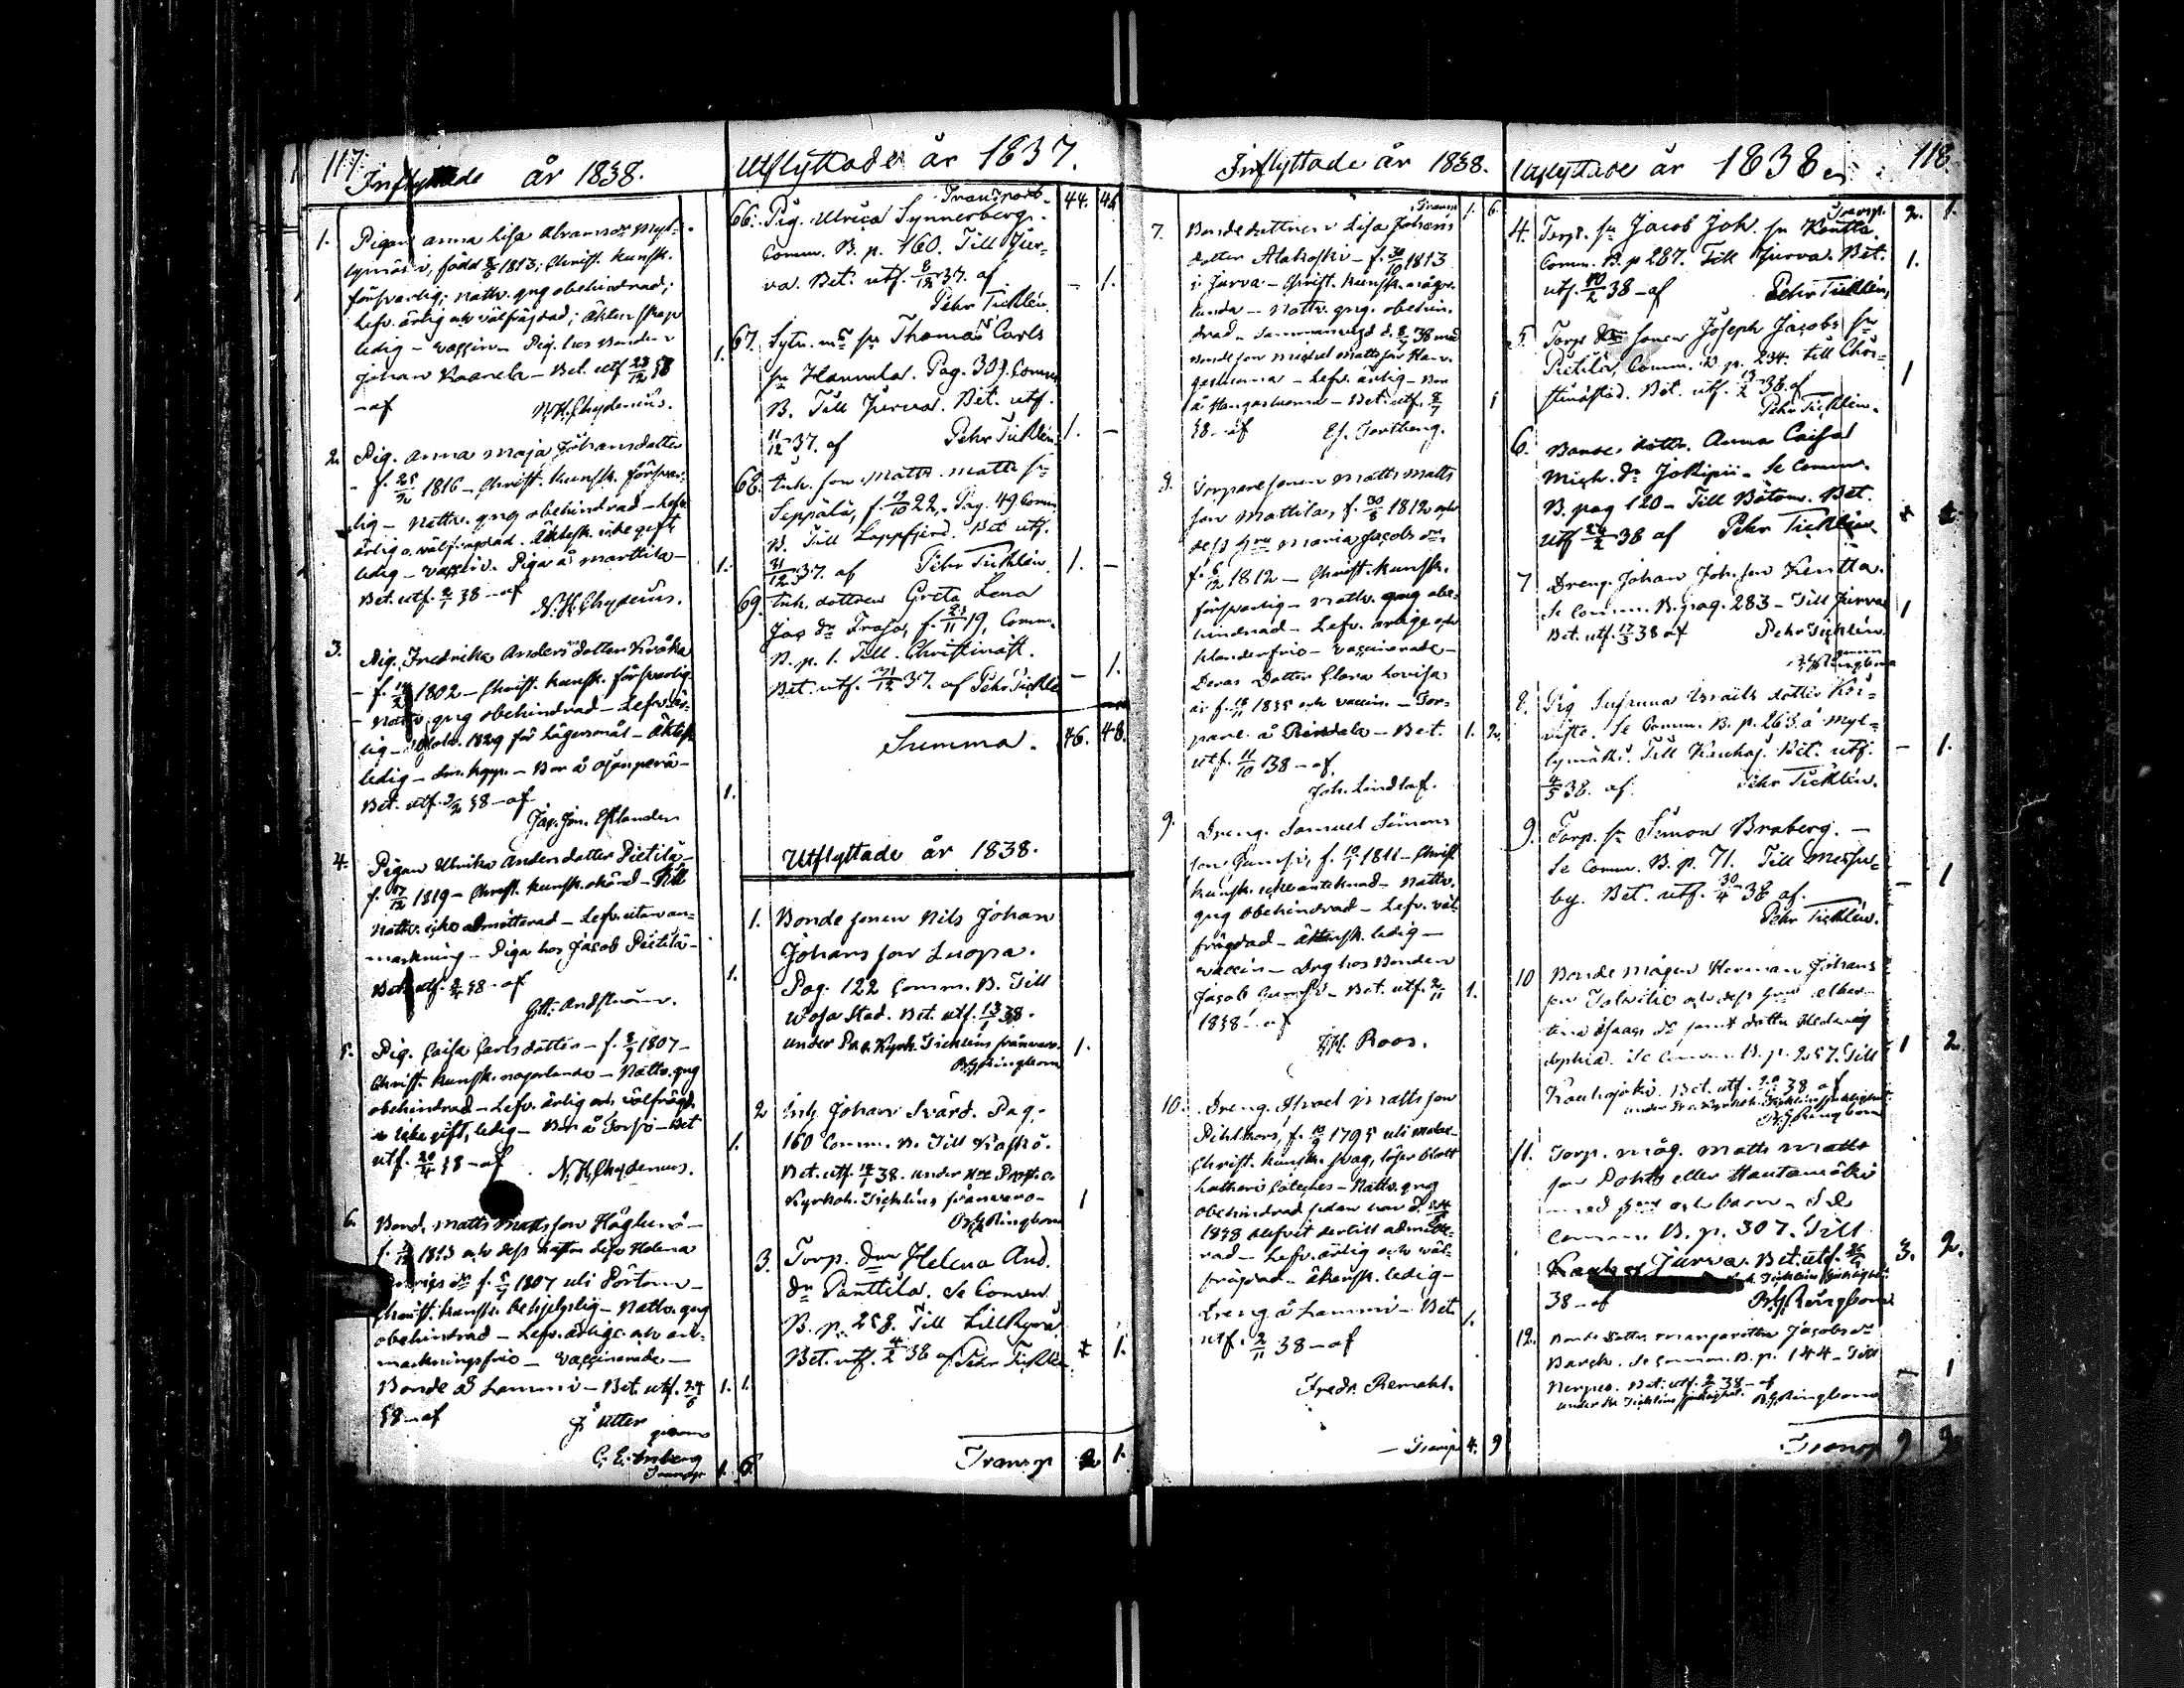 117.
Inflyttade år 1838.
1. Pigan Anna Lisa Abramsdr Myl-
lymäki, född 1813; Christ. kunsk.
försvarlig; nattv. gng obehindrad;
Lefv. ärlig och välfrägdad; Äktenskap
ledig – vaccin – Pig. hos Bonden
Johan Kaarela – Bet. utf 23/12 38
– af N.H. Chydenius. 1.
2. Pig. Anna Maja Johansdotter
f. 25/12 1816 – Christ. kunsk. försvar-
lig – Nattv. gng obehindrad – Lefv.
ärlig o. välfrägdad. Äktensk. icke gift
ledig – vaccin. Piga å Marttila –
Bet. utf. 2/1 38 – af N.H. Chydenius. 1.
3. Pig. Fredrika Andersdotter Kråka
– f. 1802 – Christ. kunsk. försvarlig
– Nattv gng obehindrad – Lefv. är-
lig – 1829 för Lägersmål – Äktensk
ledig – Bor å
Bet. utf. 38 – af 1.
Jac. Joh. Estlander
4. Pigan Ulrika Andersdotter Pietilä –
f. 17/12 1819 – Christ. kunsk. – Till
Nattv. icke admitterad – Lefv. utan an-
märkning – Piga hos Jacob Pietilä –
Bet. utf. 38 – af 1.
5. Pig. Caisa Carlsdotter – f. 3/9 1807 –
Christ. kunsk. någorlunda – Nattv. gng
obehindrad – Lefv. ärlig och välfrägd.
icke gift, ledig – Bor å – Bet
utf. 20/4 38 – af N.H. Chydenius. 1.
6. Bond. Matts Mattsson Höglund –
f. 1813 och dess hustru Lisa Helena
dr f. 1807 uti Pörtom –
Christ. kunsk. – Nattv. gng
obehindrad – Lefv. ärlige och an-
märkningsfrie – vaccinerade –
Bonde å Lammi – Bet. utf. 24/6 1. 1.
38 – af J. Utter
genom
Transp 1. 6.
Utflyttade år 1837.
Transport. 44. 46
66. Pig. Ulrica Synnerberg.
Comm. B. p. 160. Till Jur-
va. Bet. utf. 8/12 37. af – 1.
Pehr Ticklén.
67. Sytn. ms sn Thomas Carls
sn Hannula. Pag. 309. Comm
B. Till Jurva. Bet. utf.
11/12 37. af Pehr Ticklén 1. –
68. Inh. son Matts Matts sn
Seppälä, f. 19/10 22, Pag. 49 Comm
B. Till Lappfjerd. Bet utf.
31/12 37. af Pehr Ticklén. 1. –
69. Inh. dottren Greta Lena
Jac dr Frasa, f. 23/11 19, Comm.
B. p. 1. Till Christinast.
Bet. utf. 31/12 37. af Pehr Ticklé – 1.
Summa. 46. 48.
Utflyttade år 1838.
1. Bonde sonen Nils Johan
Johans son Luopa.
Pag. 122 Comm. B. Till
Wasa Stad. Bet. utf. 13/1 38.
under Pr. o. Kyrk. Ticklens frånvaro 1.
Ringbom
2 Inh. Johan Svärd. Pag.
160 Comm. B. Till Kaskö.
Bet. utf. 38. under Prost. o.
Kyrkoh. Ticklens frånvaro – 1
Ringbom
3. Torp. dr Helena And.
dr Panttila. Se Comm.
B. p. 258. Till Lillkyro
Bet. utf. 4/2 38 af Pehr Ticklén. 1.
Transp 2 1.
Inflyttade år 1838.
Transp 1. 6.
7. Bondedottren Lisa Johans
dotter Alakoski – f. 30/10 1813
i Jurva – Christ. kunsk. någor-
lunda – Nattv. gng. obehin-
drad – Sammanvigd d. 8/7 38 med
Bondeson Michel Mattsson Kan-
gasluoma – Lefv. ärlig – Bor
å Kangasluoma – Bet. utf. 8/7 1
38 – af
8. Torparesonen Matts Matts
son Mattila, f. 30/8 1812 och
dess hru Maria Jacobs dr,
f. 6/12 1812 – Christ. kunsk.
försvarlig – Nattv. gng obe-
hindrad – Lefv. ärlige och
klanderfrie – vaccinerade –
Deras Dotter Clara Lovisa
är f. 18/11 1835 och vaccin. – Tor-
pare å – Bet. 1. 2.
utf. 11/10 38 – af
Joh. Lindlöf.
9. Dreng. Samuel Simons
son f. 1811 – Christ
kunsk. icke antecknad – Nattv.
gng obehindrad – Lefv. väl
frägdad – Äktensk. ledig –
vaccin – Drg hos Bonden
Jacob – Bet. utf. 2/11 1.
1838 – af
Roos.
10. Dreng. Israel Mattsson
f. 1795 uti
Christ. kunsk. svag, läser blott
Lutheri Cateches – Nattv. gng
obehindrad sedan han d.
1838 blifvit dertill admitte-
rad – Lefv. ärlig och väl-
frägdad – Äktensk. ledig –
Dreng å Lammi – Bet 1.
utf. 2/11 38 – af
Fredr. Remahl.
– Transp 4. 9
Utflyttade år 1838. 118.
Transp. 2. 1.
4. Torp. sn Jacob Joh. sn Kentta.
Comm. B. p 287. Till Jurva. Bet. 1.
utf. 10/2 38 – af Pehr Ticklén,
5. Torp sonen Joseph Jacobs sn
Pietilä, Comm. B. p. 234. Till Chri-
stinæstad. Bet. utf. 13/2 38 af 1
Pehr Ticklén.
6. Bonde. dottr. Anna Caisa
Mich. dr Jokipii – Se Comm.
B. pag 120 – Till Bötom. Bet.
utf 24/2 38 af Pehr Ticklén
7 Dreng. Johan Joh. son Kentta.
Se Comm. B. pag. 283 – Till Jurva 1
Bet. utf. 17/3 38 af Pehr Ticklén
genom
Ringbom
8. Pig Susanna Israels dotter
Se Comm. B. p. 263 å Myl-
lymäki. Till Kauhaj. Bet. utf. – 1.
4/5 38. af. Pehr Ticklén.
9. Torp. sn Simon Braberg. –
Se Comm. B. p. 71. Till Messu-
by. Bet. utf. 30/4 38 af. – 1
Pehr Ticklén.
10 Bonde mågen Herman Johans
son och dess hru Alber-
tina Isaacs dr samt dotter Hedevig
Sophia. Se Comm. B. p. 257. Till 1 2.
Kauhajoki. Bet. utf. 38 af
Ringbom
11. Torp. måg. Matts Matts
son Pohto eller Hautamäki
med hru och barn – Se
Comm. B. p. 307. Till
Jurva. Bet. utf. 3. 2.
38 – af Ringbom
12. Bonde dottr. Margaretha Jacobs dr
Barck. Se Comm. B. p. 144 – Till
Nerpes. Bet. utf. 38 – af – 1
Ringbom
Transp 9 9